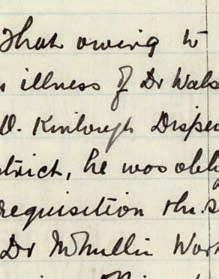 That owing to
illness of Dr Wals
O. Kinlough Dispe
trict, he was obli
requisition the s
Dr McMullin Wor